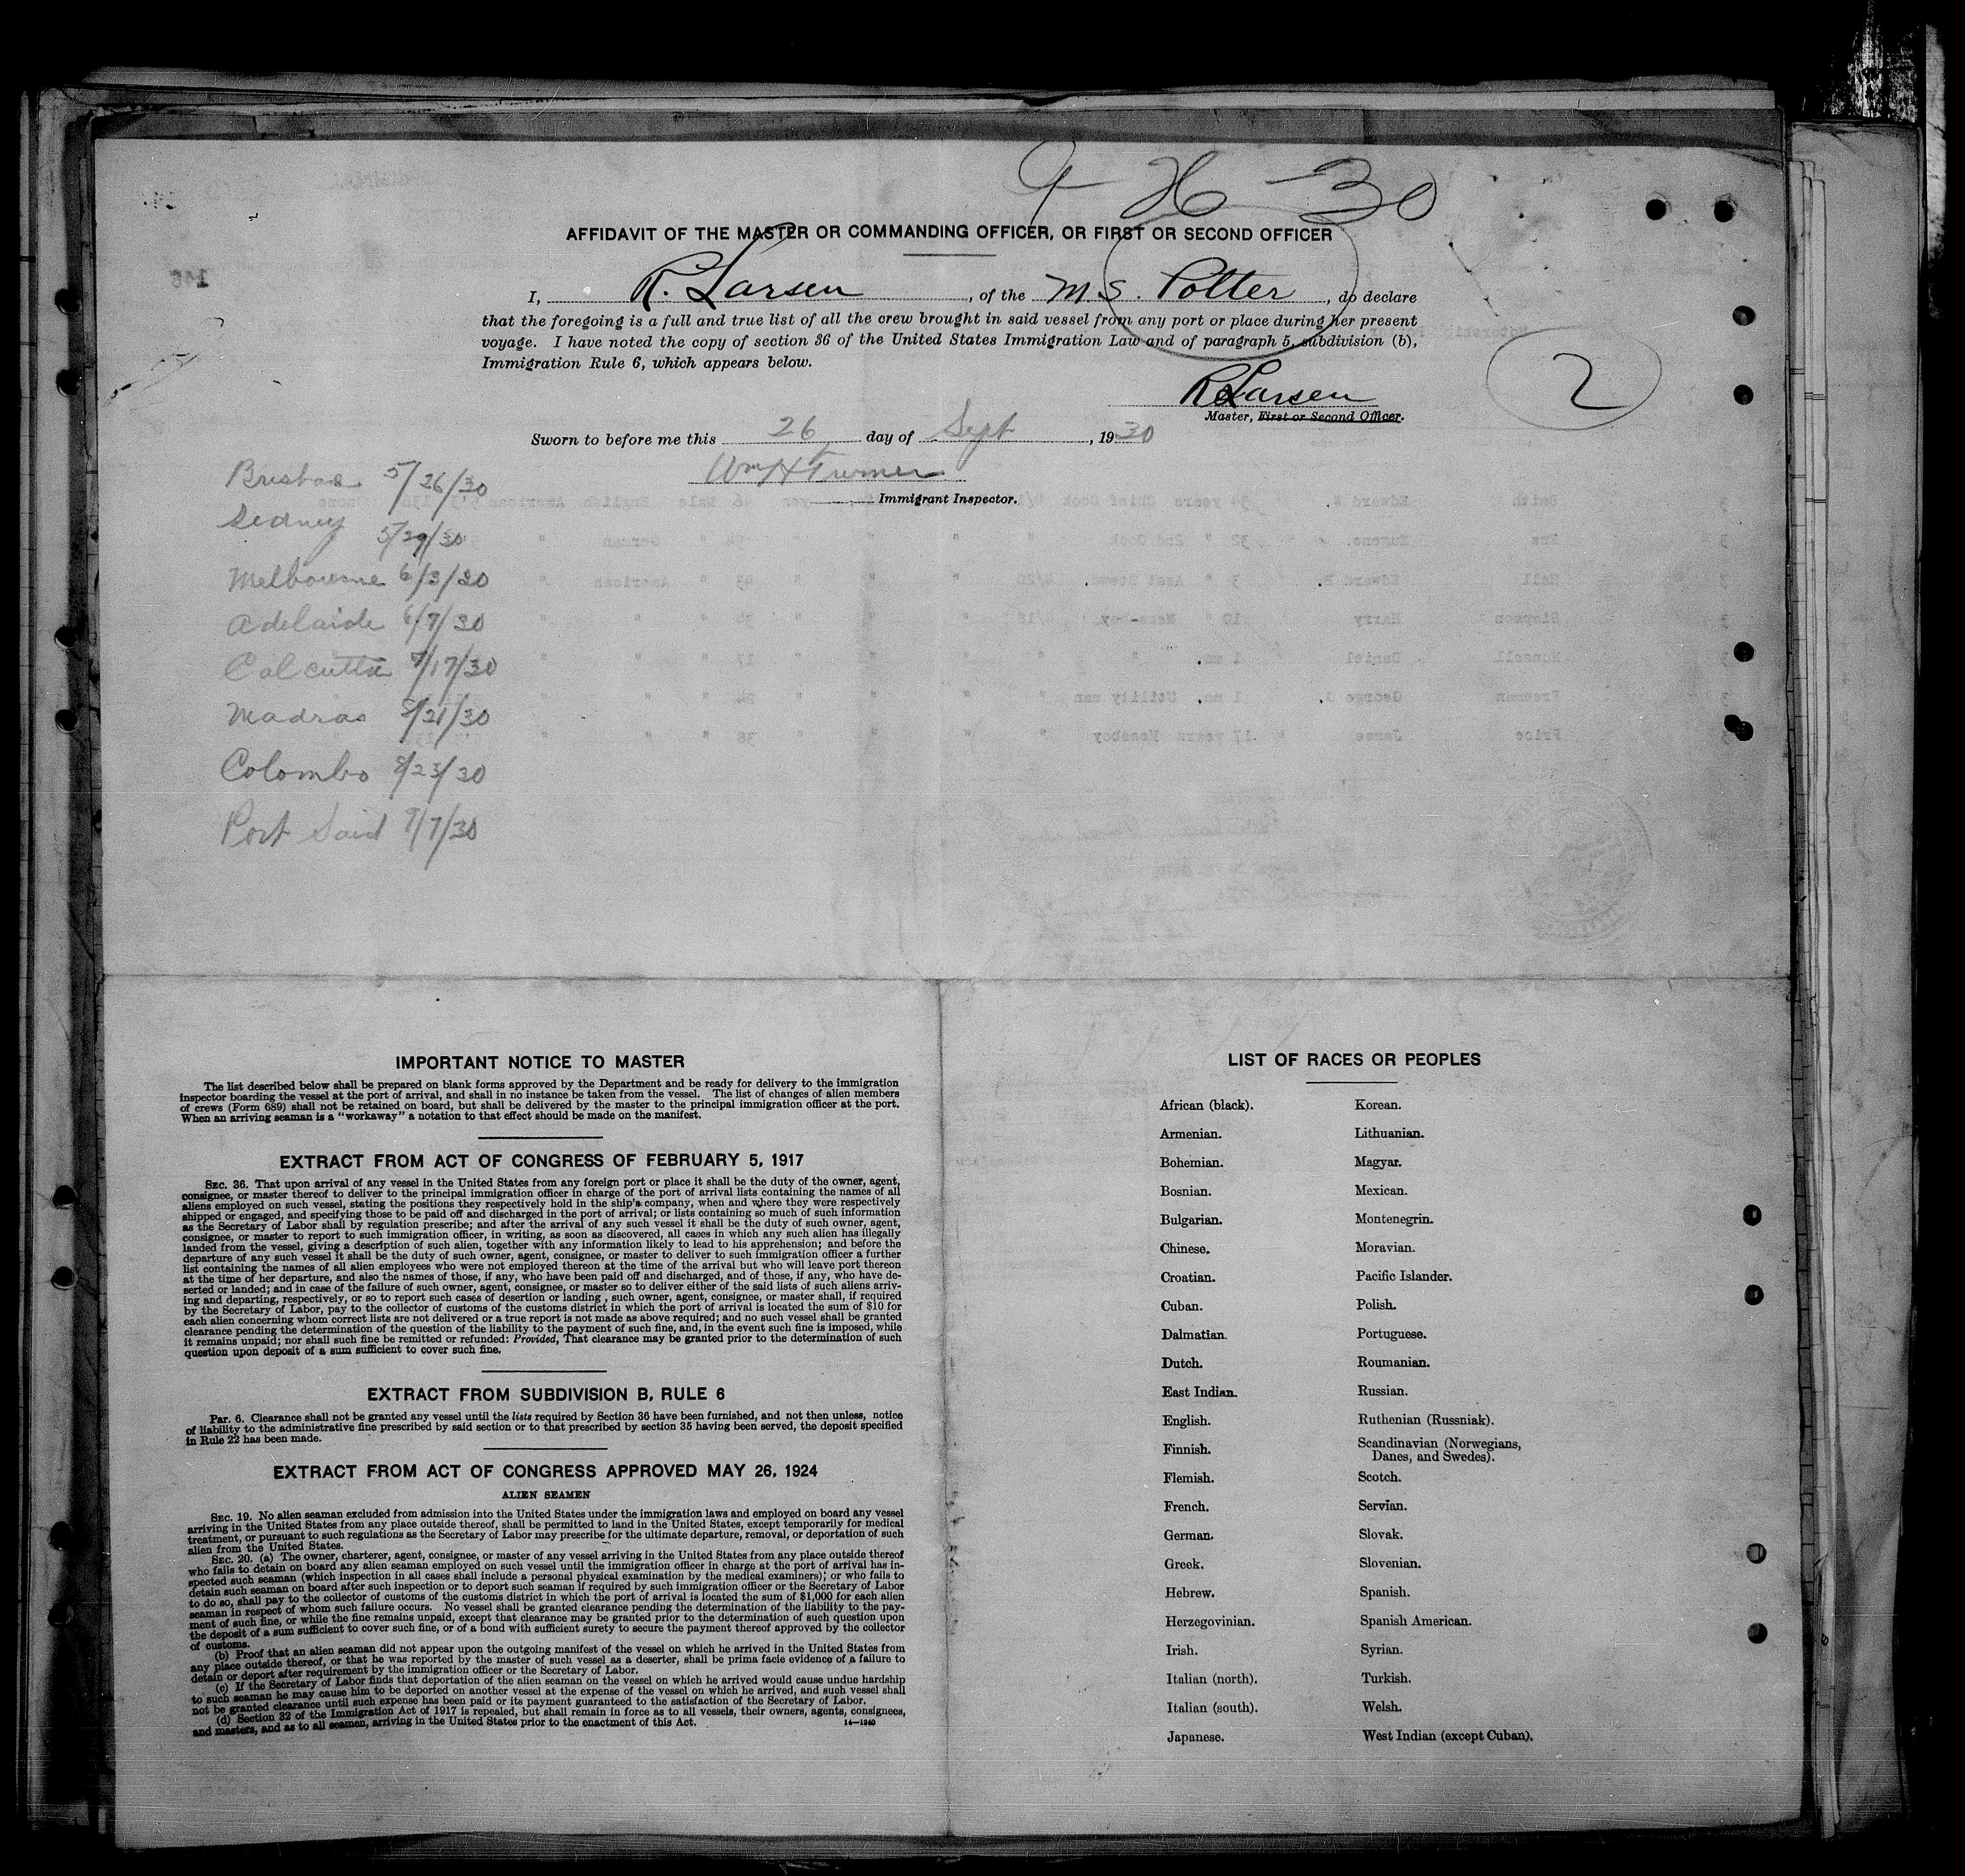 9-26-30
AFFIDAVIT OF THE MASTER OR COMMANDING OFFICER, OR FIRST OR SECOND OFFICER
I, R. Larsen, of the M.S. Potter, do declare
that the foregoing is a full and true list of all the crew brought in said vessel from any port or place during her present
voyage. I have noted the copy of section 36 of the United States Immigration Law and of paragraph 5, subdivision (b),
Immigration Rule 6, which appears below.
2
R Larsen
Master, First or Second Officer.
Sworn to before me this 26 day of Sept, 1930
Wm H Turner
Immigrant Inspector.
Brisbae 5/26/30
Sedney 5/29/30
Melbourne 6/3/30
Adelaide 6/7/30
Calcutta 7/17/30
Madras 8/21/30
Colombo 8/23/30
Port Said 9/7/30
IMPORTANT NOTICE TO MASTER
The list described below shall be prepared on blank forms approved by the Department and be ready for delivery to the immigration
inspector boarding the vessel at the port of arrival, and shall in no instance be taken from the vessel. The list of changes of alien members
of crews (Form 689) shall not be retained on board, but shall be delivered by the master to the principal immigration officer at the port.
When an arriving seaman is a "workaway" a notation to that effect should be made on the manifest.
EXTRACT FROM ACT OF CONGRESS OF FEBRUARY 5, 1917
SEC. 36. That upon arrival of any vessel in the United States from any foreign port or place it shall be the duty of the owner, agent,
consignee, or master thereof to deliver to the principal immigration officer in charge of the port of arrival lists containing the names of all
aliens employed on such vessel, stating the positions they respectively hold in the ship's company, when and where they were respectively
shipped or engaged, and specifying those to be paid off and discharged in the port of arrival; or lists containing so much of such information
as the Secretary of Labor shall by regulation prescribe; and after the arrival of any such vessel it shall be the duty of such owner, agent,
consignee, or master to report to such immigration officer, in writing, as soon as discovered, all cases in which any such alien has illegally
landed from the vessel, giving a description of such alien, together with any information likely to lead to his apprehension; and before the
departure of any such vessel it shall be the duty of such owner, agent, consignee, or master to deliver to such immigration officer a further
list containing the names of all alien employees who were not employed thereon at the time of the arrival but who will leave port thereon
at the time of her departure, and also the names of those, if any, who have been paid off and discharged, and of those, if any, who have de-
serted or landed; and in case of the failure of such owner, agent, consignee, or master so to deliver either of the said lists of such aliens arriv-
ing and departing, respectively, or so to report such cases of desertion or landing, such owner, agent, consignee, or master shall, if required
by the Secretary of Labor, pay to the collector of customs of the customs district in which the port of arrival is located the sum of $10 for
each alien concerning whom correct lists are not delivered or a true report is not made as above required; and no such vessel shall be granted
clearance pending the determination of the question of the liability to the payment of such fine, and, in the event such fine is imposed, while
it remains unpaid; nor shall such fine be remitted or refunded: Provided, That clearance may be granted prior to the determination of such
question upon deposit of a sum sufficient to cover such fine.
EXTRACT FROM SUBDIVISION B, RULE 6
Par. 6. Clearance shall not be granted any vessel until the lists required by Section 36 have been furnished, and not then unless, notice
of liability to the administrative fine prescribed by said section or to that prescribed by section 35 having been served, the deposit specified
in Rule 22 has been made.
EXTRACT FROM ACT OF CONGRESS APPROVED MAY 26, 1924
ALIEN SEAMEN
SEC. 19. No alien seaman excluded from admission into the United States under the immigration laws and employed on board any vessel
arriving in the United States from any place outside thereof, shall be permitted to land in the United States, except temporarily for medical
treatment, or pursuant to such regulations as the Secretary of Labor may prescribe for the ultimate departure, removal, or deportation of such
alien from the United States.
SEC. 20. (a) The owner, charterer, agent, consignee, or master of any vessel arriving in the United States from any place outside thereof
who fails to detain on board any alien seaman employed on such vessel until the immigration officer in charge at the port of arrival has in-
spected such seaman (which inspection in all cases shall include a personal physical examination by the medical examiners); or who fails to
detain such seaman on board after such inspection or to deport such seaman if required by such immigration officer or the Secretary of Labor
to do so, shall pay to the collector of customs of the customs district in which the port of arrival is located the sum of $1,000 for each alien
seaman in respect of whom such failure occurs. No vessel shall be granted clearance pending the determination of the liability to the pay-
ment of such fine, or while the fine remains unpaid, except that clearance may be granted prior to the determination of such question upon
the deposit of a sum sufficient to cover such fine, or of a bond with sufficient surety to secure the payment thereof approved by the collector
of customs.
(b) Proof that an alien seaman did not appear upon the outgoing manifest of the vessel on which he arrived in the United States from
any place outside thereof, or that he was reported by the master of such vessel as a deserter, shall be prima facie evidence of a failure to
detain or deport after requirement by the immigration officer or the Secretary of Labor.
(c) If the Secretary of Labor finds that deportation of the alien seaman on the vessel on which he arrived would cause undue hardship
to such seaman he may cause him to be deported on another vessel at the expense of the vessel on which he arrived, and such vessel shall
not be granted clearance until such expense has been paid or its payment guaranteed to the satisfaction of the Secretary of Labor.
(d) Section 32 of the Immigration Act of 1917 is repealed, but shall remain in force as to all vessels, their owners, agents, consignees,
and masters, and as to all seamen, arriving in the United States prior to the enactment of this Act.
14—1240
LIST OF RACES OR PEOPLES
African (black).
Armenian.
Bohemian.
Bosnian.
Bulgarian.
Chinese.
Croatian.
Cuban.
Dalmatian.
Dutch.
East Indian.
English.
Finnish.
Flemish.
French.
German.
Greek.
Hebrew.
Herzegovinian.
Irish.
Italian (north).
Italian (south).
Japanese.
Korean.
Lithuanian.
Magyar.
Mexican.
Montenegrin.
Moravian.
Pacific Islander.
Polish.
Portuguese.
Roumanian.
Russian.
Ruthenian (Russniak).
Scandinavian (Norwegians,
Danes, and Swedes).
Scotch.
Servian.
Slovak.
Slovenian.
Spanish.
Spanish American.
Syrian.
Turkish.
Welsh.
West Indian (except Cuban).